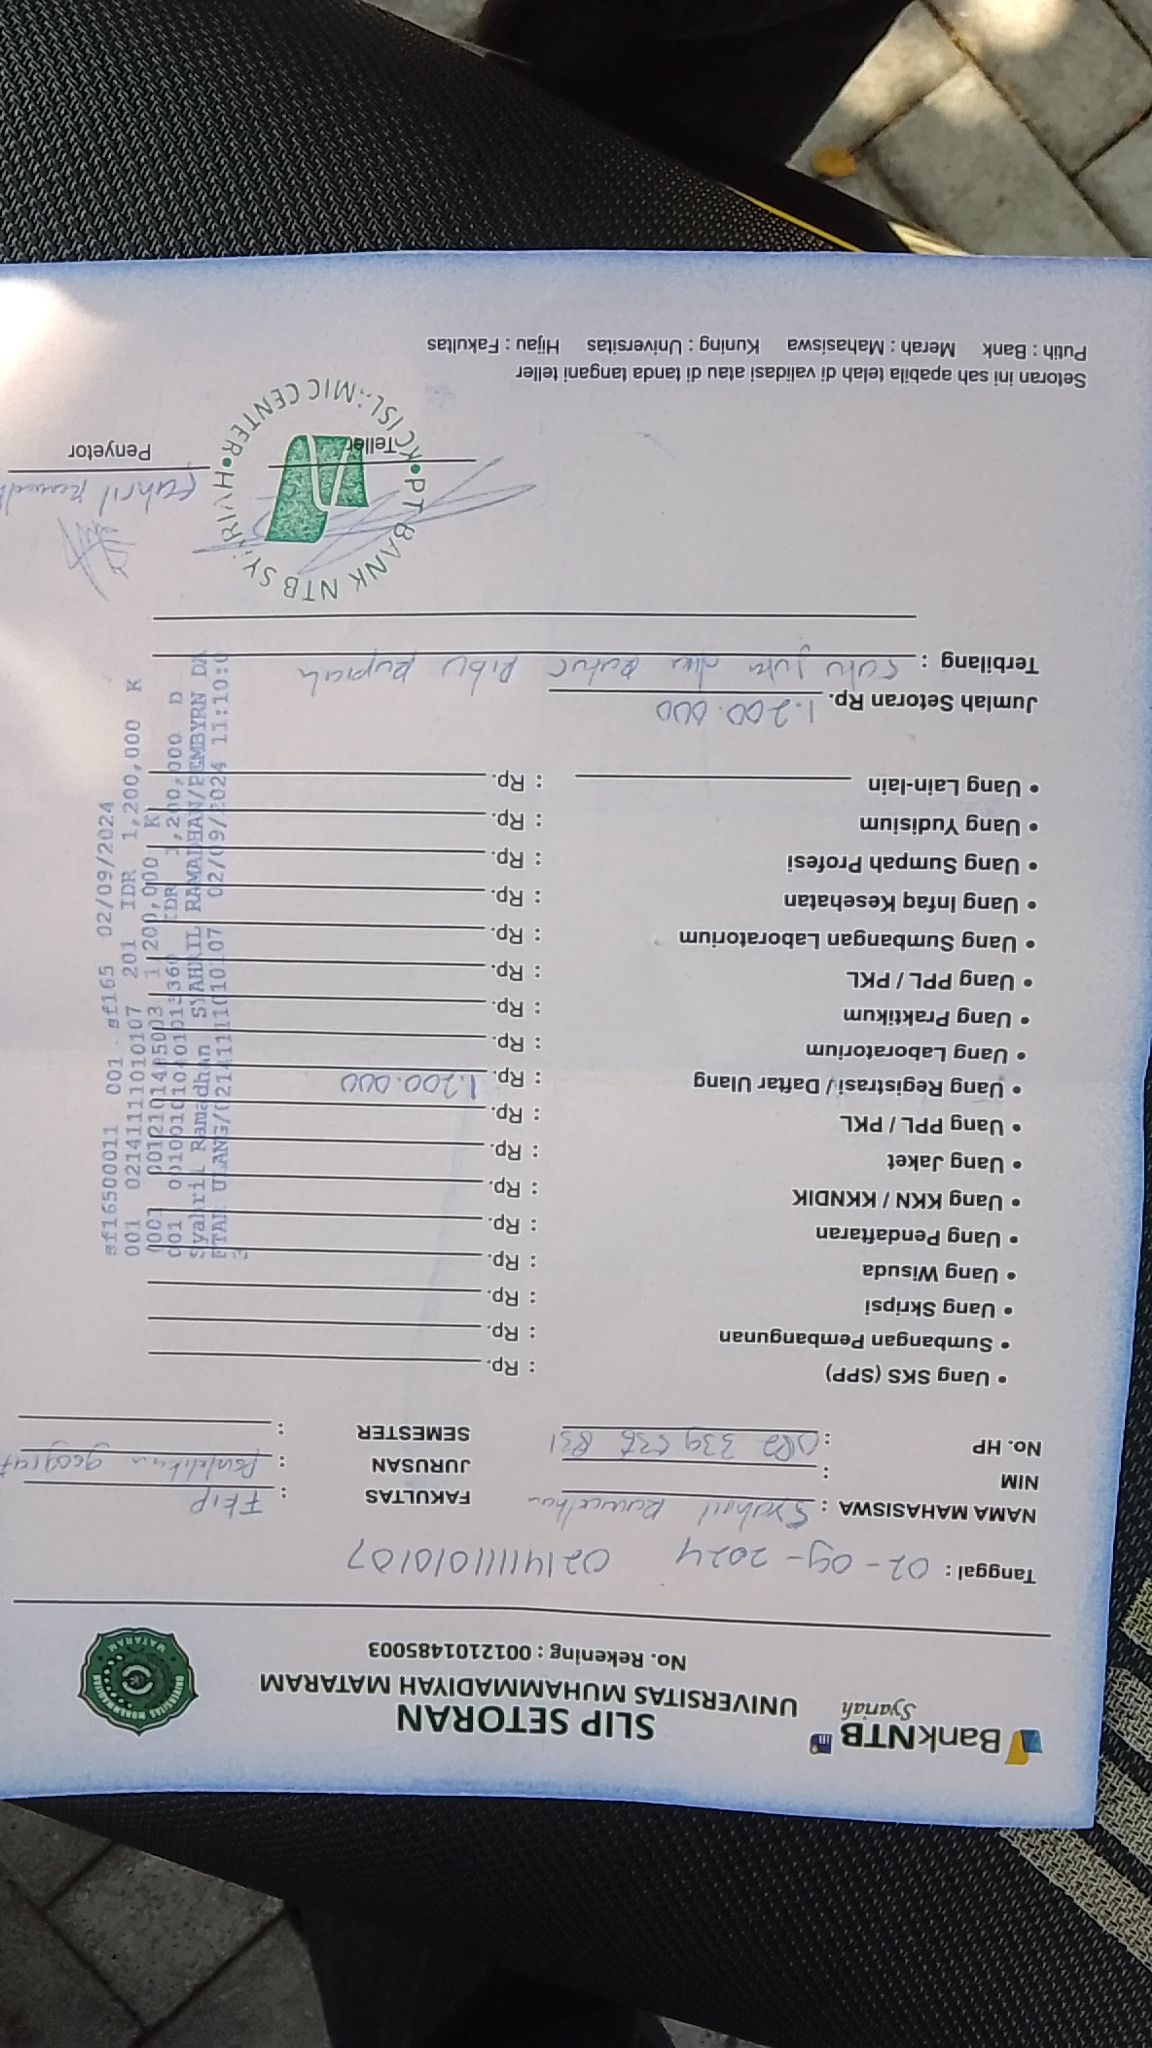 BankNTB
Syariah
SLIP SETORAN
UNIVERSITAS MUHAMMADIYAH MATARAM
No. Rekening : 0012101485003
UNIVERSITAS MUHAMMADIYAH
MATARAM
Tanggal : 02-09-2024 02141111010107
NAMA MAHASISWA : Syahril Ramadhan
FAKULTAS : FKIP
NIM :
JURUSAN : Pendidikan geografi
No. HP :
SEMESTER :
• Uang SKS (SPP) : Rp.
• Sumbangan Pembangunan : Rp.
• Uang Skripsi : Rp.
• Uang Wisuda : Rp.
• Uang Pendaftaran : Rp.
• Uang KKN / KKNDIK : Rp.
• Uang Jaket : Rp.
• Uang PPL / PKL : Rp.
• Uang Registrasi / Daftar Ulang : Rp. 1.200.000
• Uang Laboratorium : Rp.
• Uang Praktikum : Rp.
• Uang PPL / PKL : Rp.
• Uang Sumbangan Laboratorium : Rp.
• Uang Infaq Kesehatan : Rp.
• Uang Sumpah Profesi : Rp.
• Uang Yudisium : Rp.
• Uang Lain-lain : Rp.
Jumlah Setoran Rp. 1.200.000
Terbilang : Satu juta dua Ratus Ribu Rupiah
sf16500011 001 sf165 02/09/2024
001 02141111010107 201 IDR 1,200,000 K
0001 0012101485003 1,200,000 K
001 IDR 1,200,000 D
Syahril Ramadhan SYAHRIL RAMADHAN/PEMBYRN DA
FTAR ULANG/02141111010107 02/09/2024 11:10:0
PT BANK NTB SYARIAH
KC ISLAMIC CENTER
Teller
Penyetor
Setoran ini sah apabila telah di validasi atau di tanda tangani teller
Putih : Bank Merah : Mahasiswa Kuning : Universitas Hijau : Fakultas